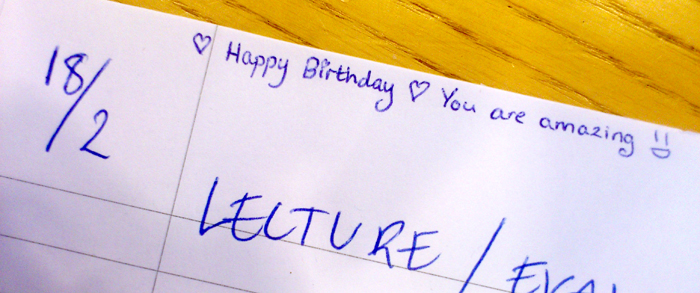 ♡ Happy Birthday ♡ You are amazing
18/2
LECTURE /